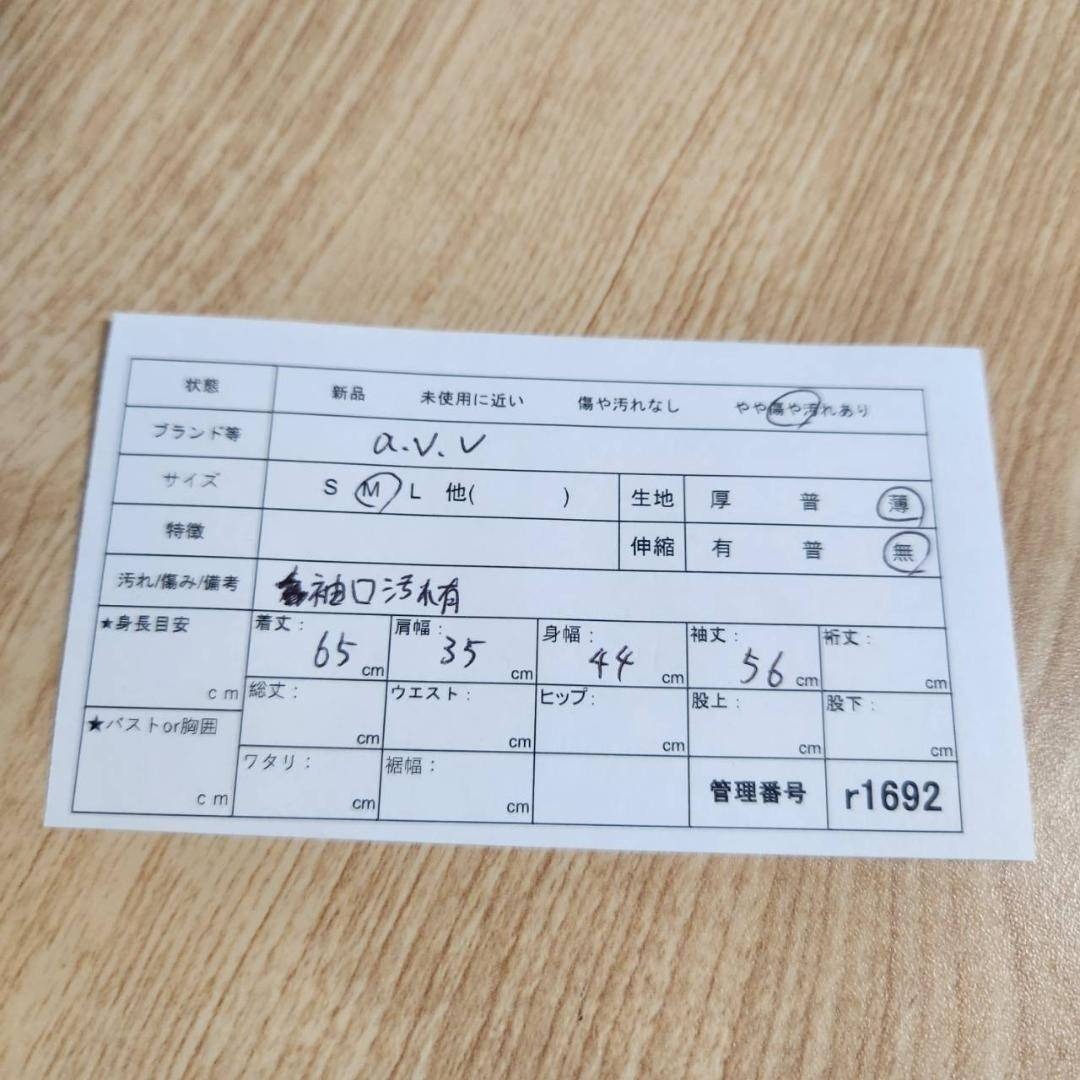 状態 新品 未使用に近い 傷や汚れなし やや傷や汚れあり
ブランド等 a.v.v
サイズ S M L 他( ) 生地 厚 普 薄
特徴 伸縮 有 普 無
汚れ/傷み/備考 袖口汚れ有
★身長目安 cm 着丈: 65 cm 肩幅: 35 cm 身幅: 44 cm 袖丈: 56 cm 裄丈: cm
総丈: cm ウエスト: cm ヒップ: cm 股上: cm 股下: cm
★バストor胸囲 cm ワタリ: cm 裾幅: cm 管理番号 r1692